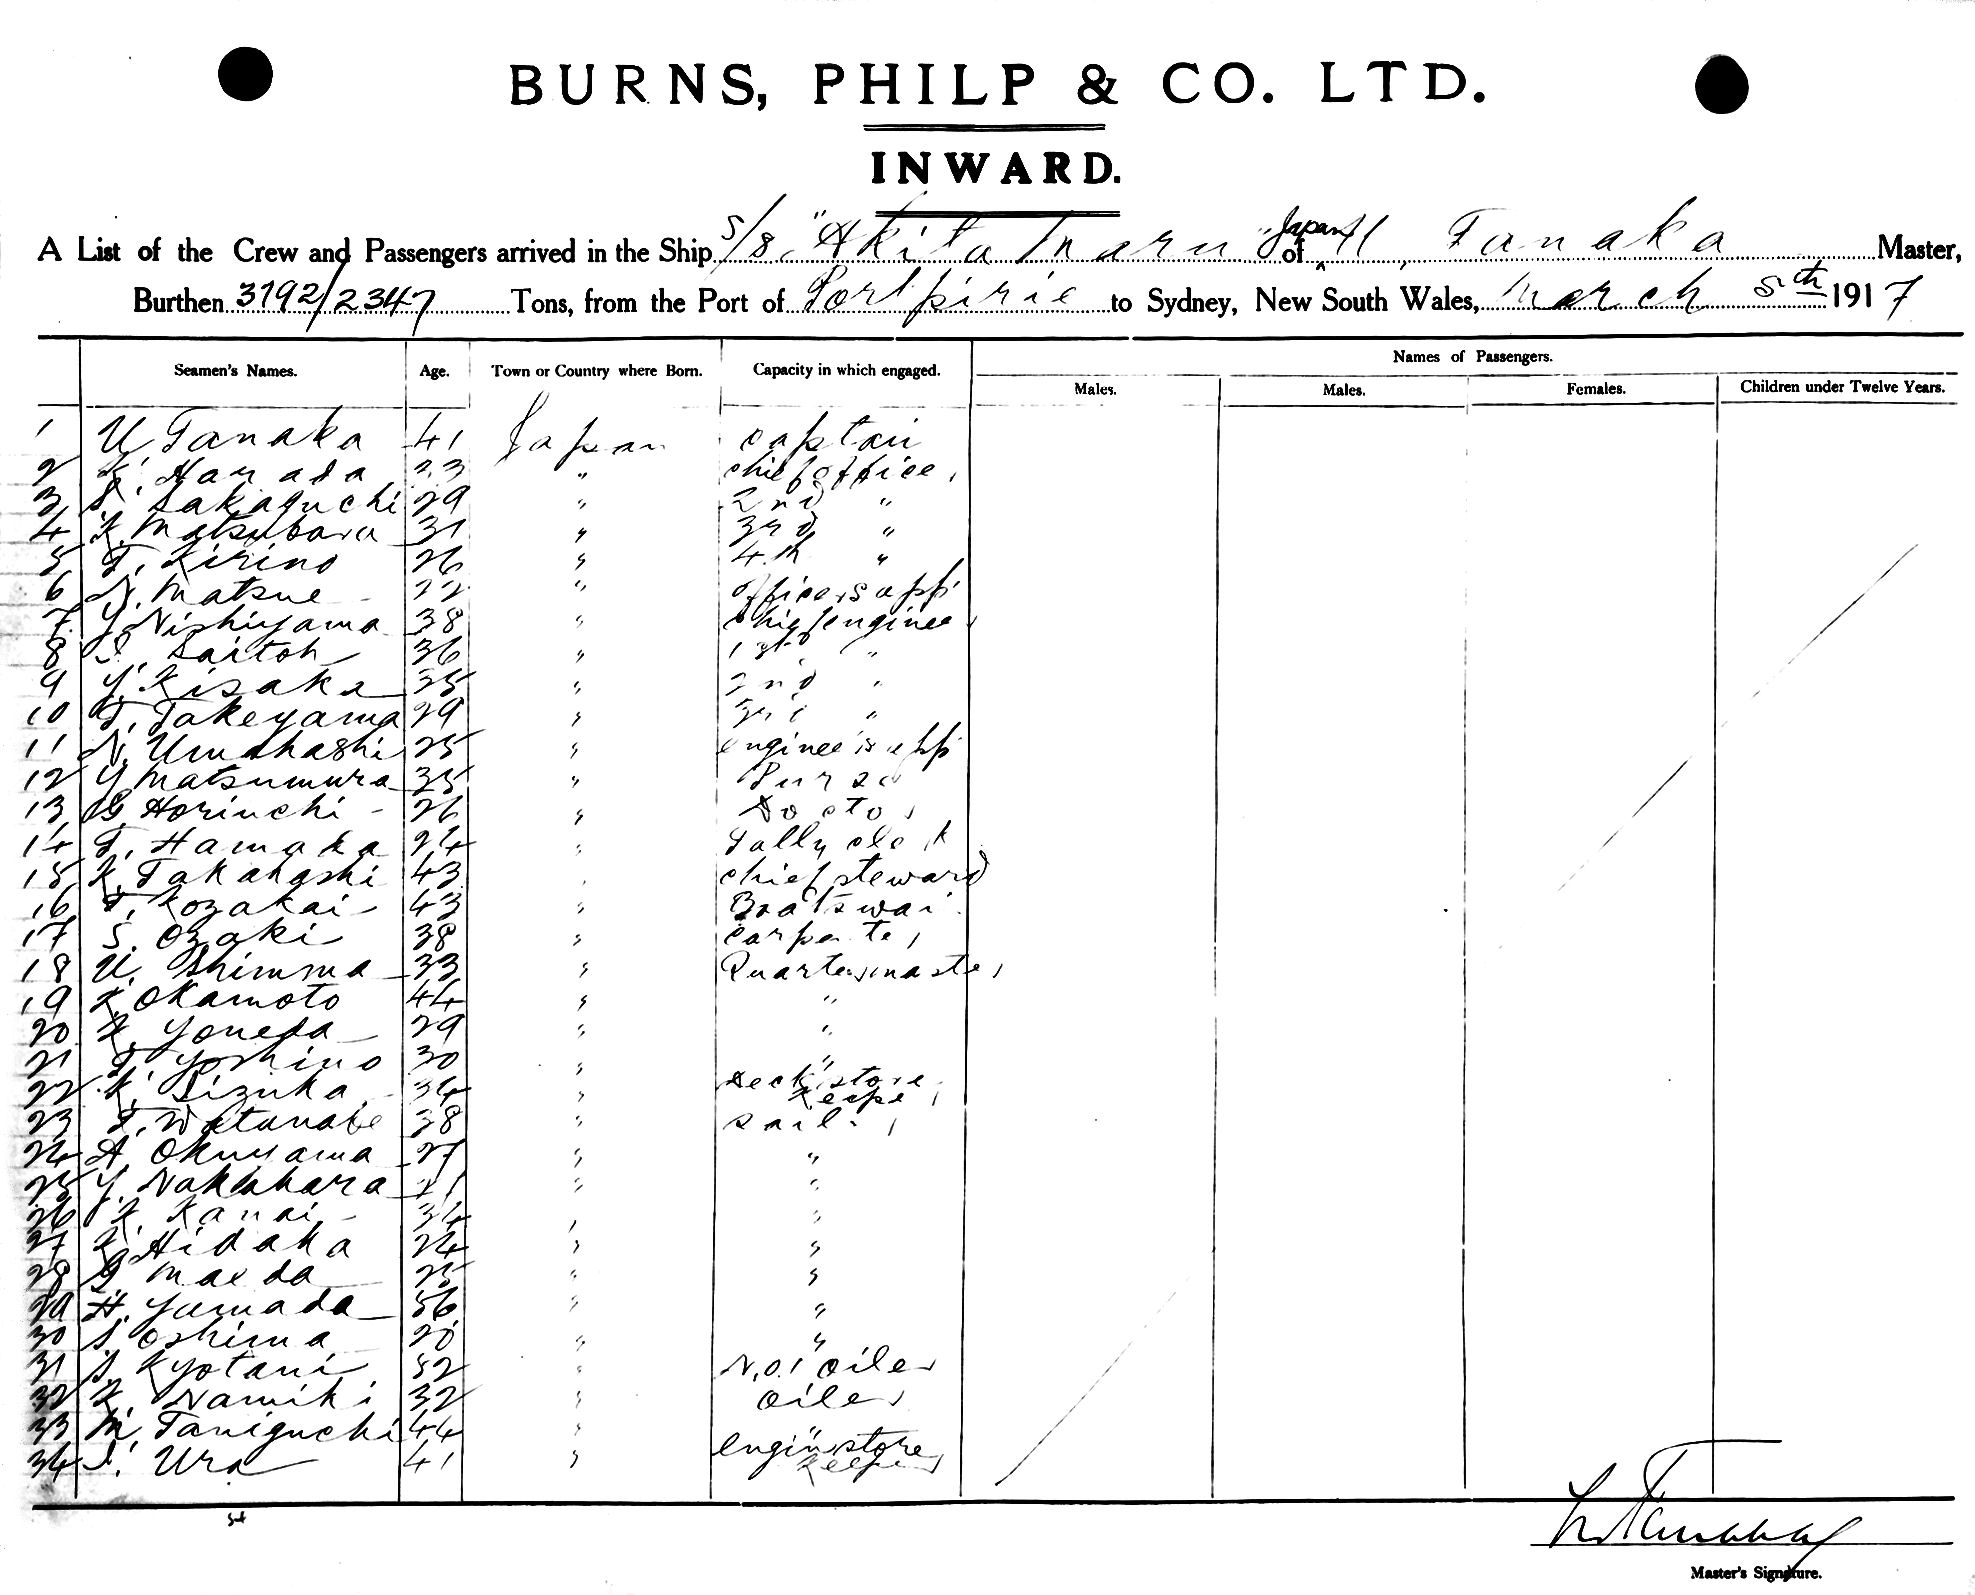 BURNS, PHILP & CO. LTD.
INWARD.
A List of the Crew and Passengers arrived in the Ship S/S. "Akita Maru" of Japan U. Tanaka Master,
Burthen 3192/2347 Tons, from the Port of Port pirie to Sydney, New South Wales, March 5th 1917
Names of Passengers.
Seamen's Names. Age. Town or Country where Born. Capacity in which engaged. Males. Males. Females. Children under Twelve Years.
1 U. Tanaka 41 Japan captain
2 K. Harada 33 " chief officer
3 S. Sakaguchi 29 " 2nd "
4 K. Matsubara 31 " 3rd "
5 T. Kirino 26 " 4th "
6 N. Matsue 22 " officers app
7 Y. Nishiyama 38 " chief engineer
8 I. Saitoh 36 " 1st "
9 Y. Kisaka 35 " 2nd "
10 T. Takeyama 29 " 3rd "
11 N. Umahashi 25 " engineers app
12 Y. Matsumura 35 " Purser
13 G. Horiuchi 26 " Doctor
14 T. Hamaka 24 " Tally clerk
15 K. Takahashi 43 " chief steward
16 T. Kozakai 43 " Boatswain
17 S. Ozaki 38 " carpenter
18 U. Shimma 33 " Quartermaster
19 K. Okamoto 44 " "
20 K. Yoneda 29 " "
21 T. Yoshino 30 " "
22 K. Iizuka 34 " Deck store keeper
23 T. Watanabe 38 " sailor
24 A. Okuyama 27 " "
25 Y. Nakahara 21 " "
26 K. Kanai 34 " "
27 K. Hidaka 24 " "
28 G. Maeda 25 " "
29 H. Yamada 56 " "
30 S. Oshima 20 " "
31 S. Kyotani 52 " No. 1 oiler
32 K. Namiki 32 " oiler
33 M. Taniguchi 44 " "
34 I. Ura 41 " engine store keeper
U. Tanaka
Master's Signature.